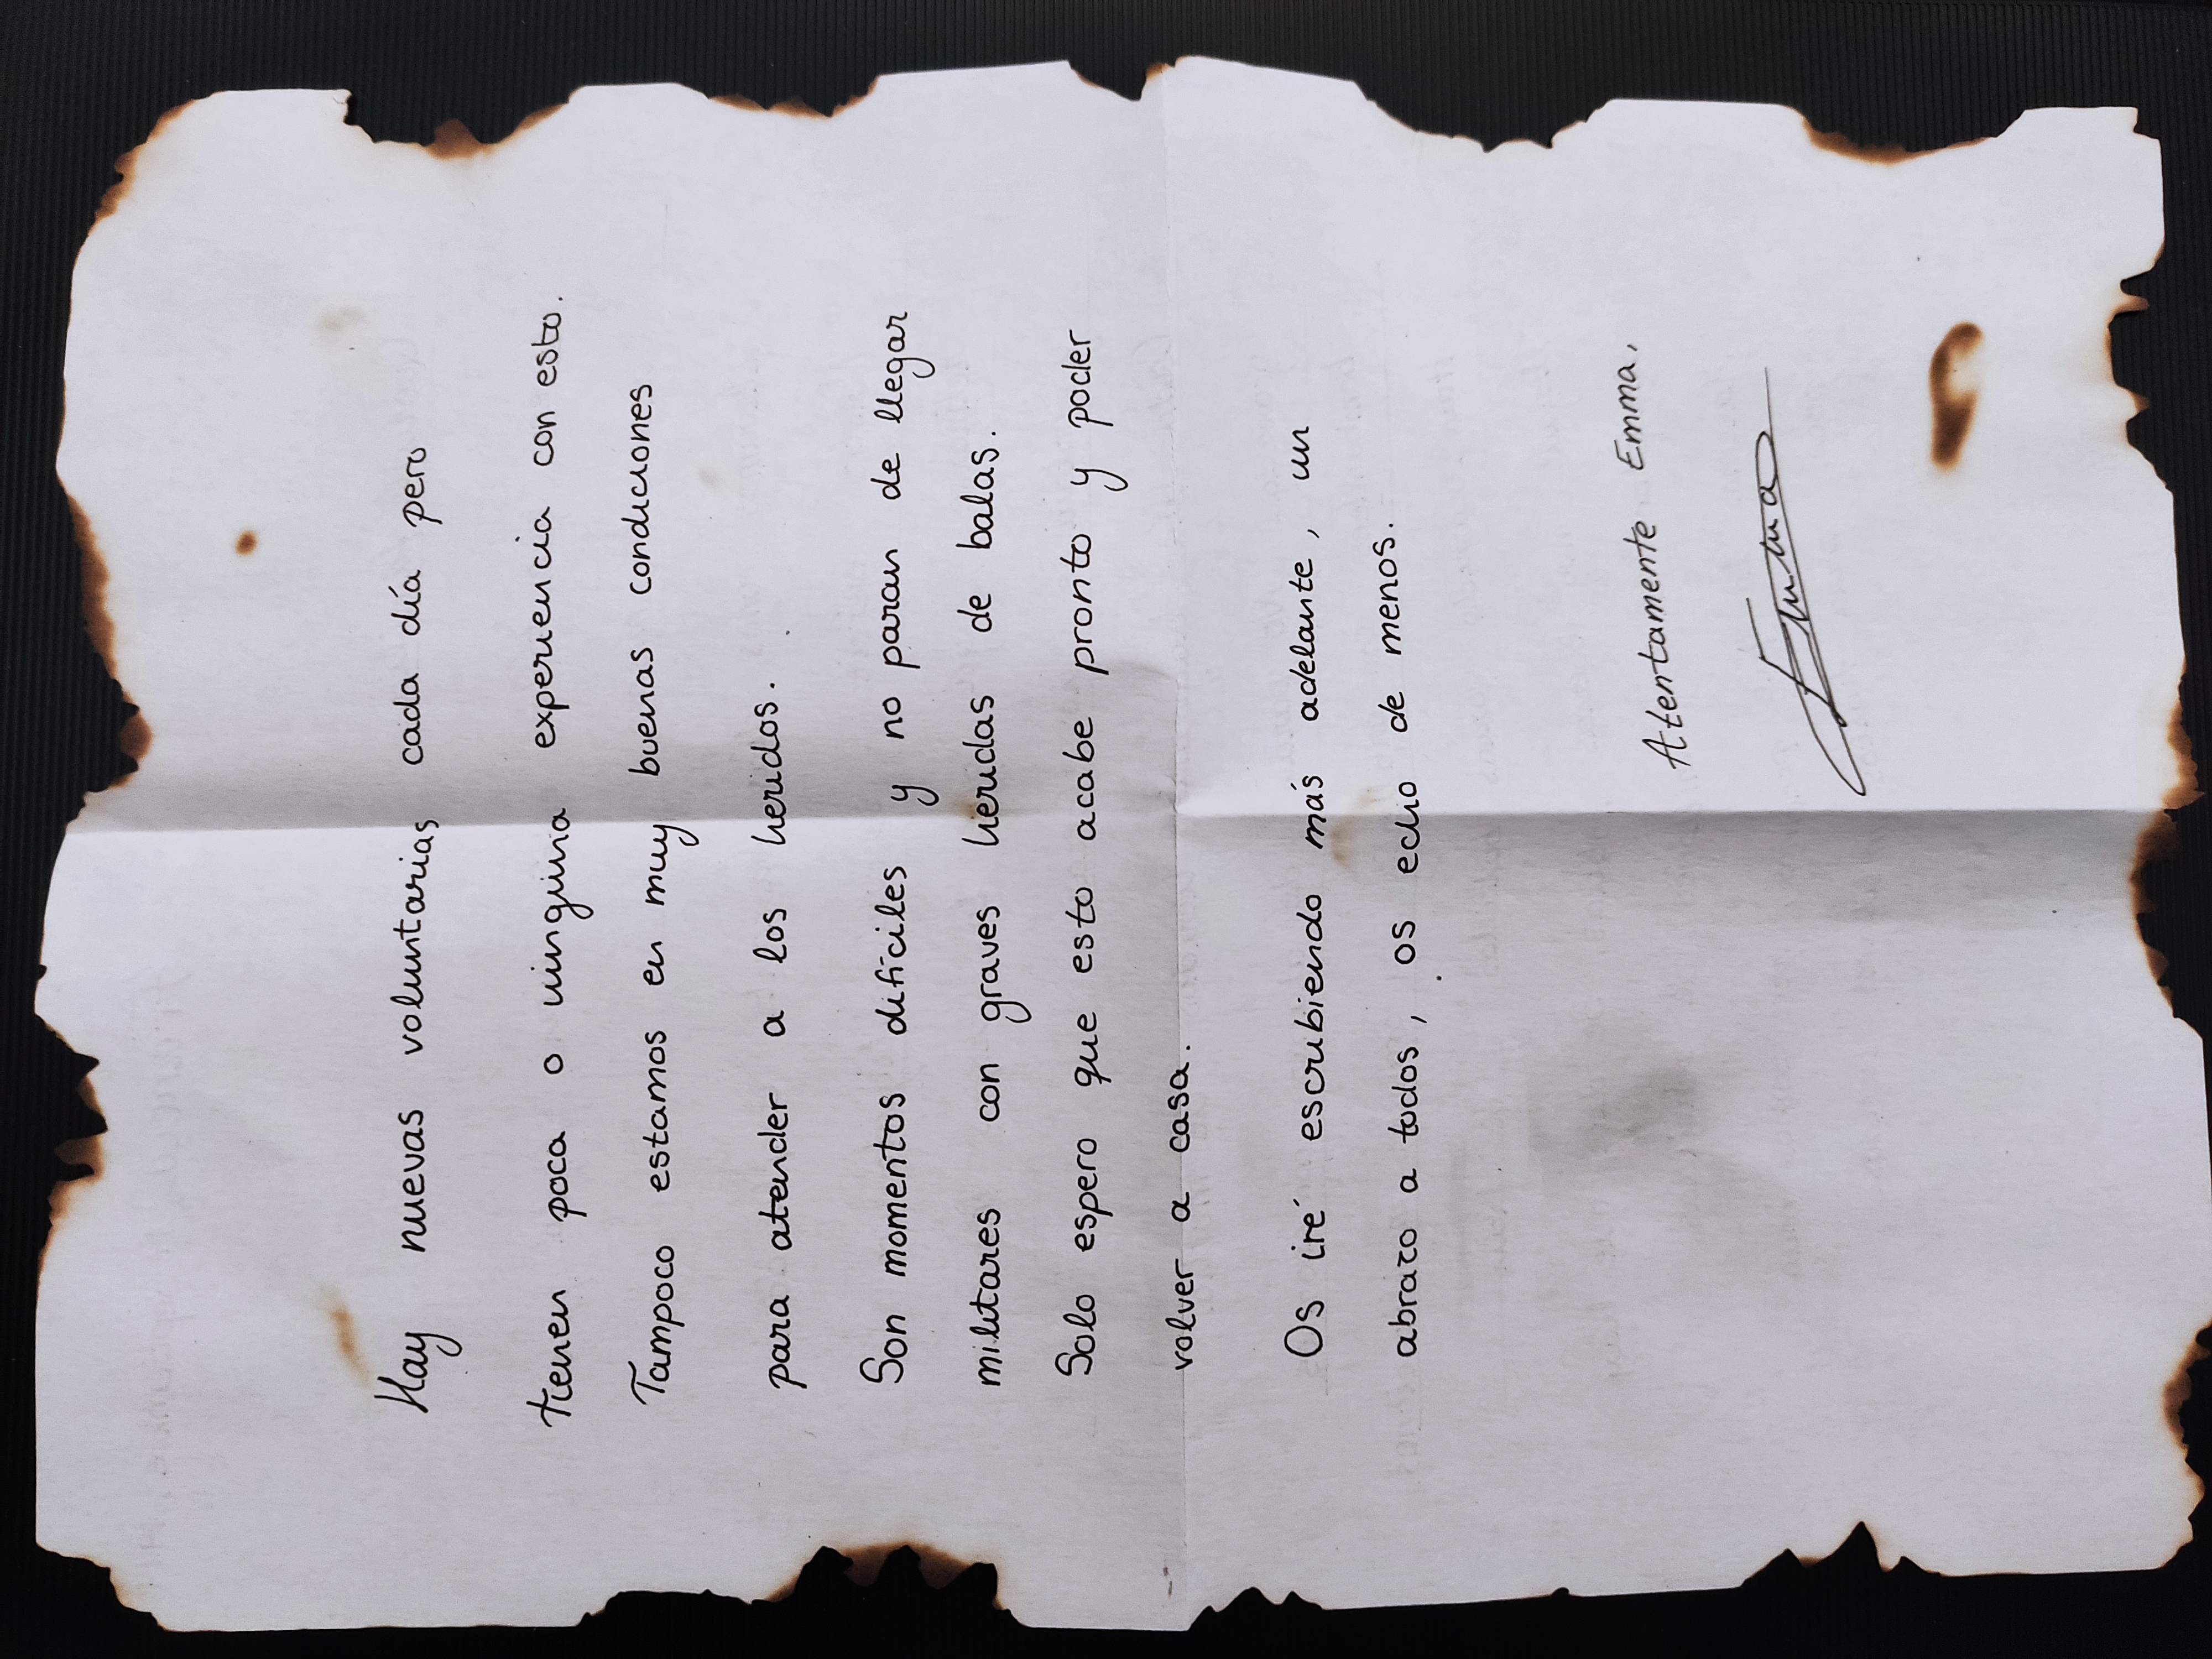 Hay nuevas voluntarias cada día pero
tienen poca o ninguna experiencia con esto.
Tampoco estamos en muy buenas condiciones
para atender a los heridos.
Son momentos difíciles y no paran de llegar
militares con graves heridas de balas.
Solo espero que esto acabe pronto y poder
volver a casa.
Os iré escribiendo más adelante, un
abrazo a todos, os echo de menos.
Atentamente Emma.
Emma